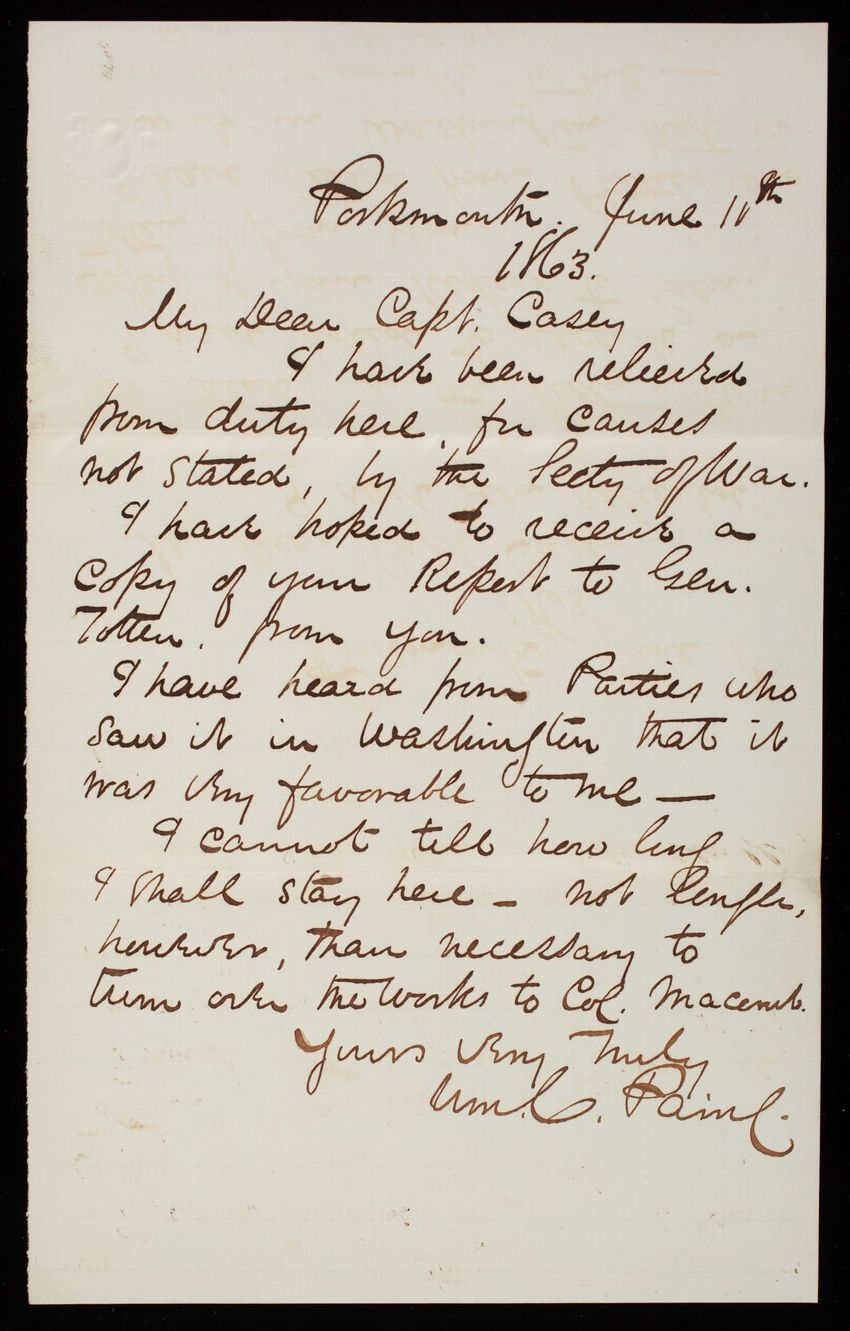 Portsmouth. June 11th
1863.
My Dear Capt. Casey
I have been relieved
from duty here, for causes
not stated, by the Secty of War.
I have hoped to receive a
copy of your Report to Gen.
Totten. from you.
I have heard from Parties who
saw it in Washington that it
was very favorable to me —
I cannot tell how long
I shall stay here — not longer,
however, than necessary to
turn over the works to Col. Macomb.
Yours Very Truly
Wm. C. Paine.